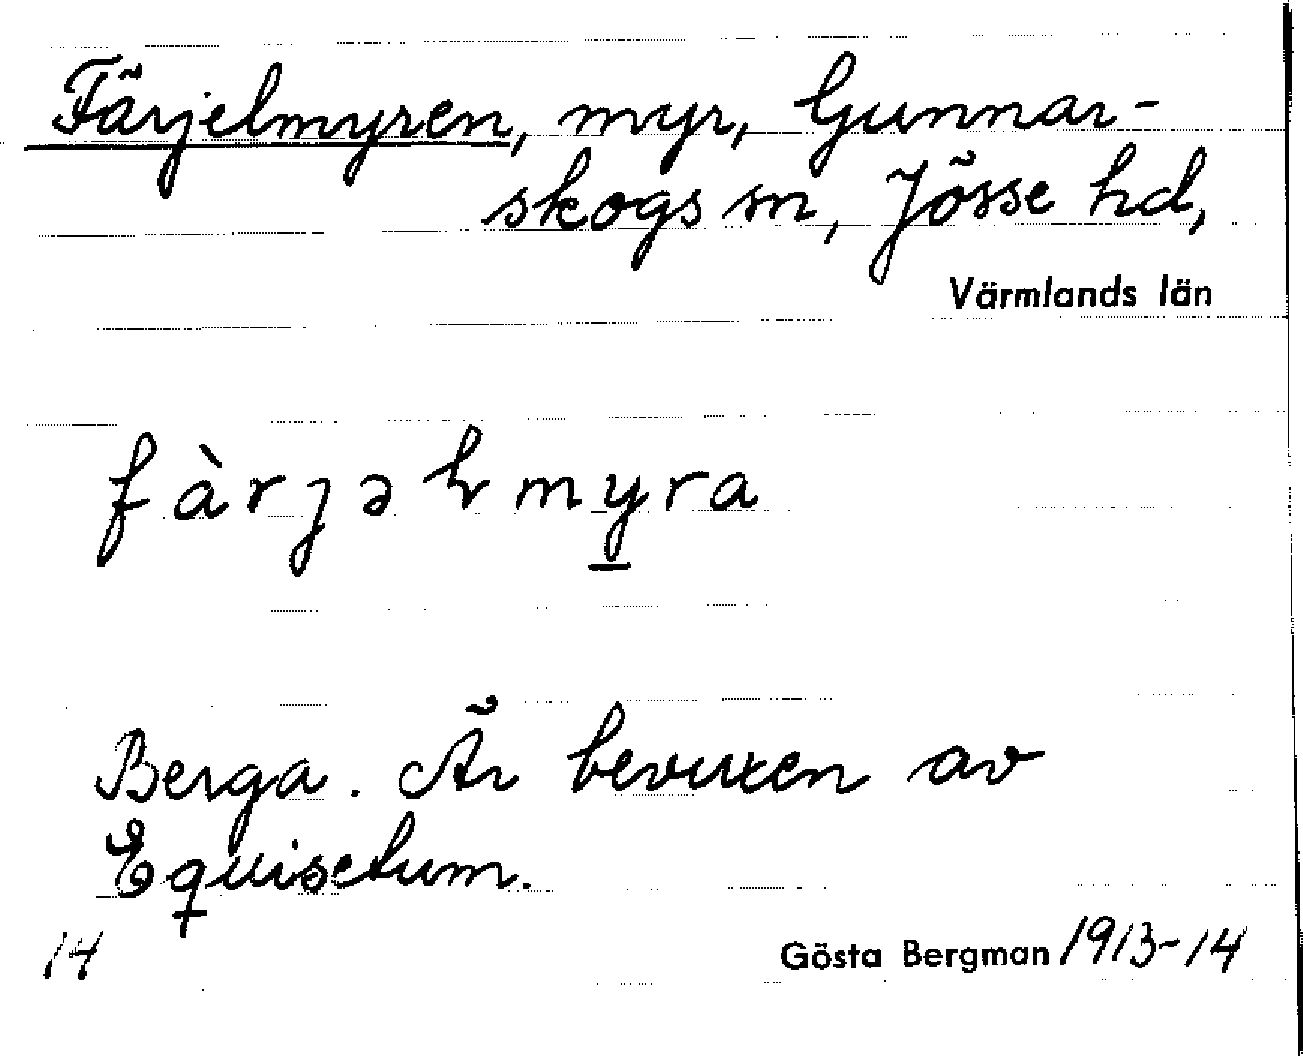 Färjelmyren, myr, Gunnar-
skogs sn, Jösse hd,
Värmlands län
fàrjəɫmyra
Berga. Är bevuxen av
Equisetum.
14
Gösta Bergman 1913-14